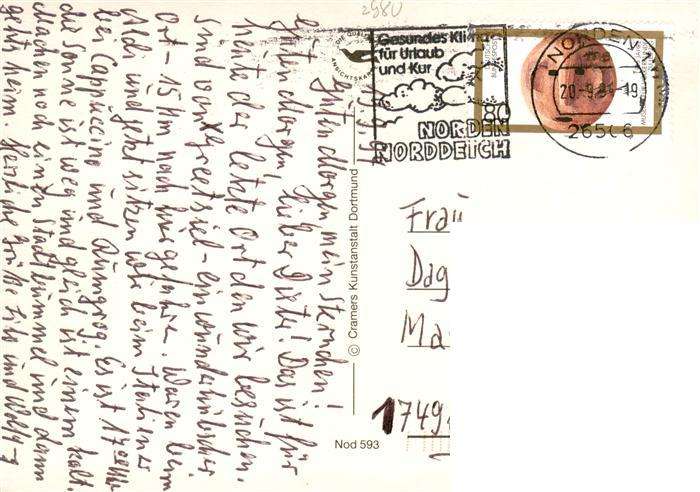 2980
Guten Morgen mein Sternchen!
Guten Morgen, lieber Dieter! Das ist für
heute der letzte Ort den wir besuchen.
Sind von Greetsiel - ein wunderhübscher
Ort - 15 km nach hier gefahren. Waren beim
Aldi und jetzt sitzen wir beim Italiener
bei Cappuccino und Rumgrog. Es ist 17 Uhr
die Sonne ist weg und gleich ist einem kalt.
Machen noch einen Stadtbummel und dann
geht's heim. Herzliche Grüße und
© Cramers Kunstanstalt Dortmund
Nod 593
Gesundes Klima
für Urlaub
und Kur
NORDEN
NORDDEICH
DEUTSCHE
BUNDESPOST
80
NORDEN
20-9. -19
26506
Frau
Dag
Ma
1749